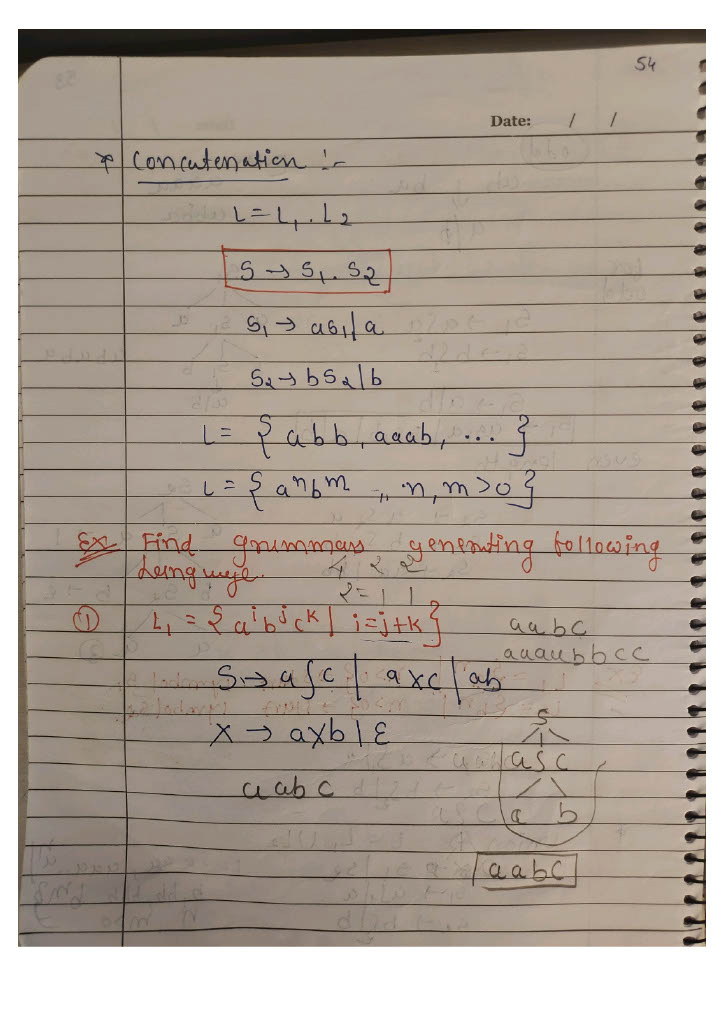 54
Date: / /
* Concatenation :-
L = L₁ . L₂
S → S₁ . S₂
S₁ → aS₁ | a
S₂ → bS₂ | b
L = { abb, aaab, ... }
L = { aⁿbᵐ ,, n, m > 0 }
Ex Find grammar generating following
Language.
4 2 2
2 = 1 1
① L₁ = { aⁱbʲcᵏ | i = j + k }
aabc
aaaabbcc
S → aSc | axc | ab
X → aXb | ε
S
aSc
aabc
a b
aabc